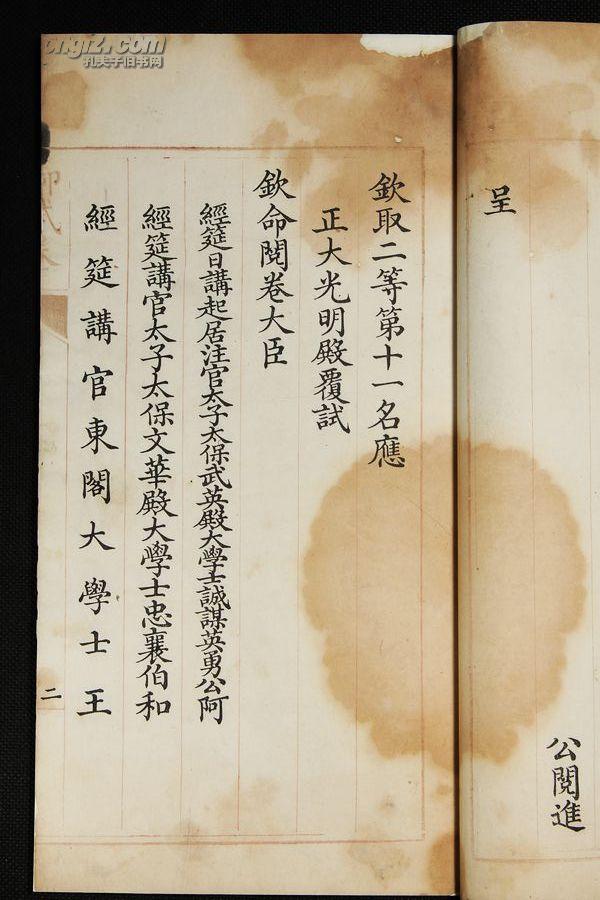 公閱進
呈
欽取二等第十一名應
正大光明殿覆試
欽命閱卷大臣
經筵日講起居注官太子太保武英殿大學士誠謀英勇公阿
經筵講官太子太保文華殿大學士忠襄伯和
經筵講官東閣大學士王
二
孔夫子旧书网